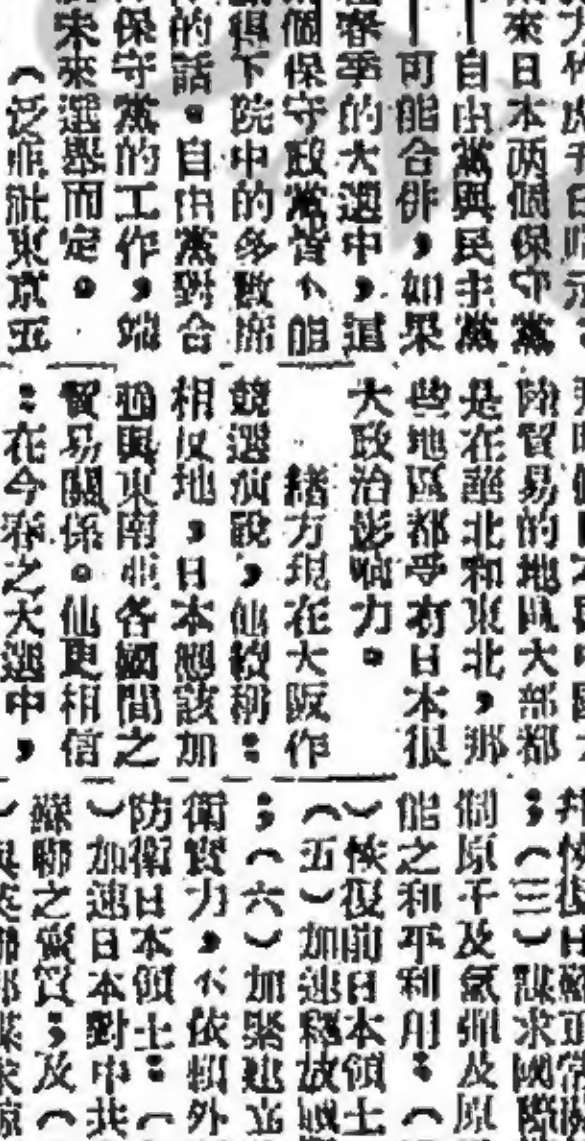 來日本两個保守黨
自由黨與民主黨
可能合併，如果
春季的大選中，這
個保守政黨皆不能
得下院中的多數席
的話。自由黨對合
保守黨的工作，端
未來選舉而定。
（泛亞社東京五
陸貿易的地區大部都
是在華北和東北，那
些地區都受有日本很
大政治影响力。
緒方現在大阪作
競選演說，他續稱：
相反地，日本應該加
強與東南亞各國間之
貿易關係。他更相信
：在今春之大選中，
；（三）謀求國際
制原子及氫彈及原
能之和平利用：（
）恢復前日本領土
（五）加速釋放
；（六）加緊建立
衛實力，不依賴外
防衛日本領土：（
）加速日本對中共
蘇聯之貿；及（